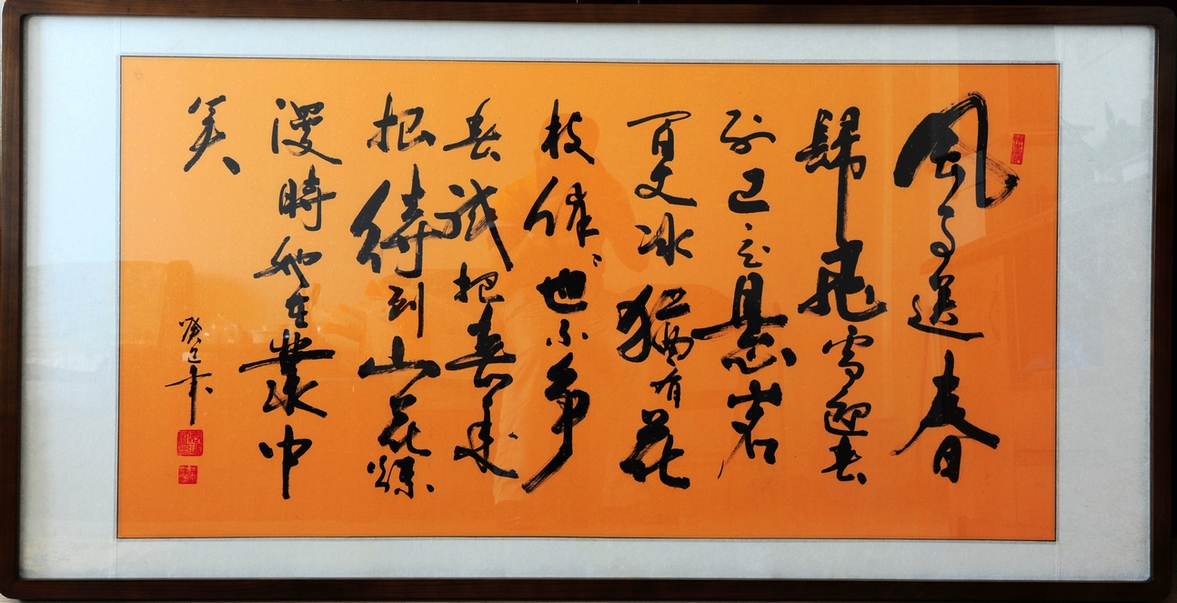 風雨送春
歸飛雪迎春
到已是懸岩
百丈冰猶有花
枝俏〻也不争
春祇把春来
报待到山花爛
漫時她在叢中
笑
癸巳年